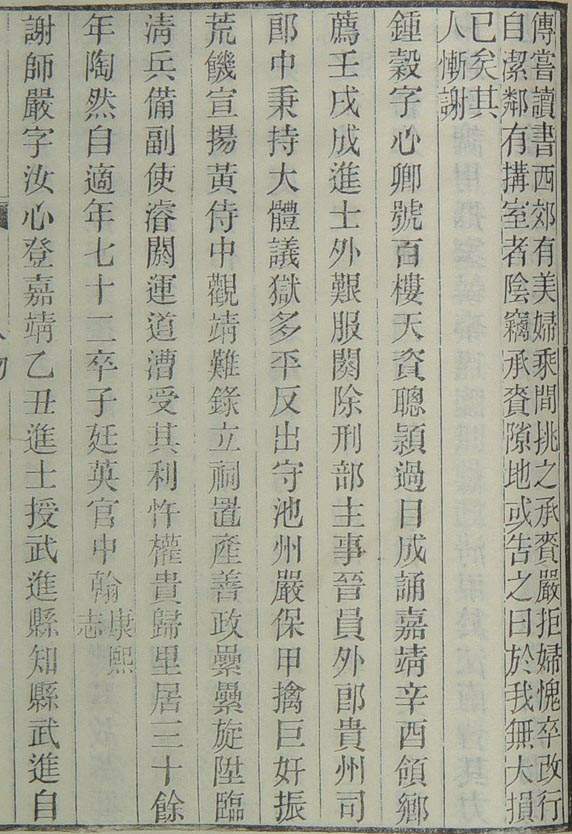 傳嘗讀書西郊有美婦乘間挑之承賚嚴拒婦愧卒改行
自潔鄰有搆室者陰竊承賚隙地或告之曰於我無大損
已矣其
人慚謝
鍾穀字心卿號百樓天資聰穎過目成誦嘉靖辛酉領鄉
薦壬戌成進士外艱服闋除刑部主事晉員外郎貴州司
郎中秉持大體議獄多平反出守池州嚴保甲擒巨奸振
荒饑宣揚黃侍中觀靖難錄立祠置產善政纍纍旋陞臨
淸兵備副使濬閼運道漕受其利忤權貴歸里居三十餘
年陶然自適年七十二卒子廷英官中翰康熙
志
謝師嚴字汝心登嘉靖乙丑進士授武進縣知縣武進自